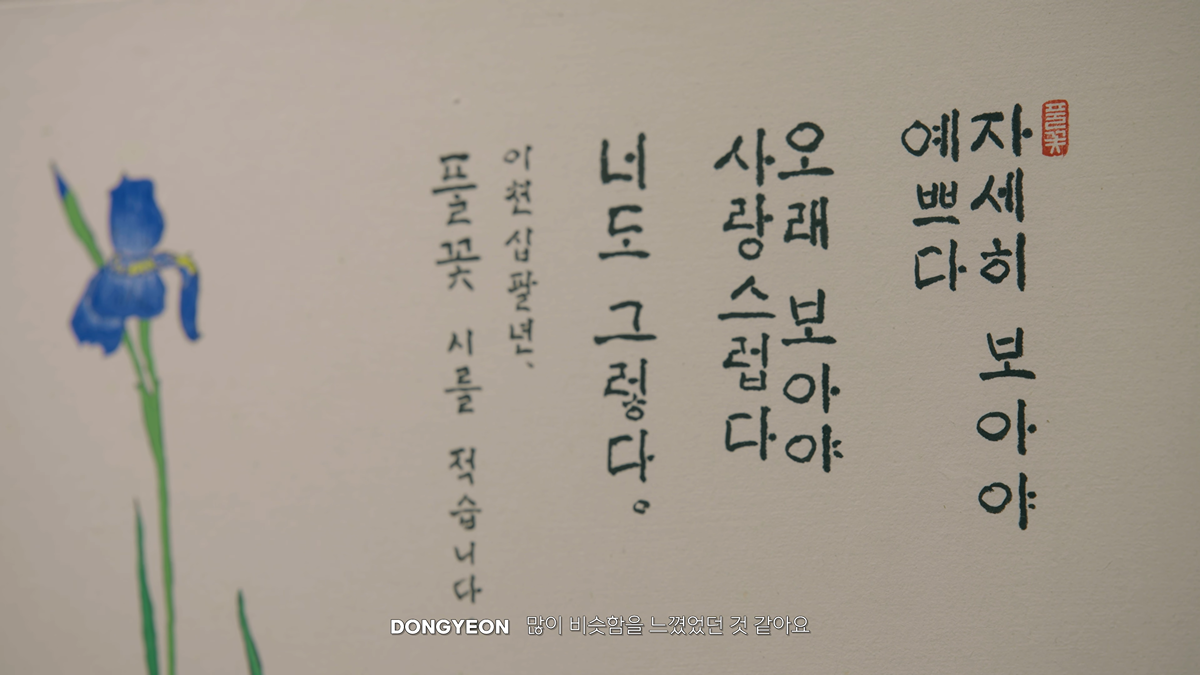 풀꽃
자세히 보아야
예쁘다
오래 보아야
사랑스럽다
너도 그렇다。
이천십팔년.
풀꽃 시를 적습니다
DONGYEON 많이 비슷함을 느꼈었던 것 같아요